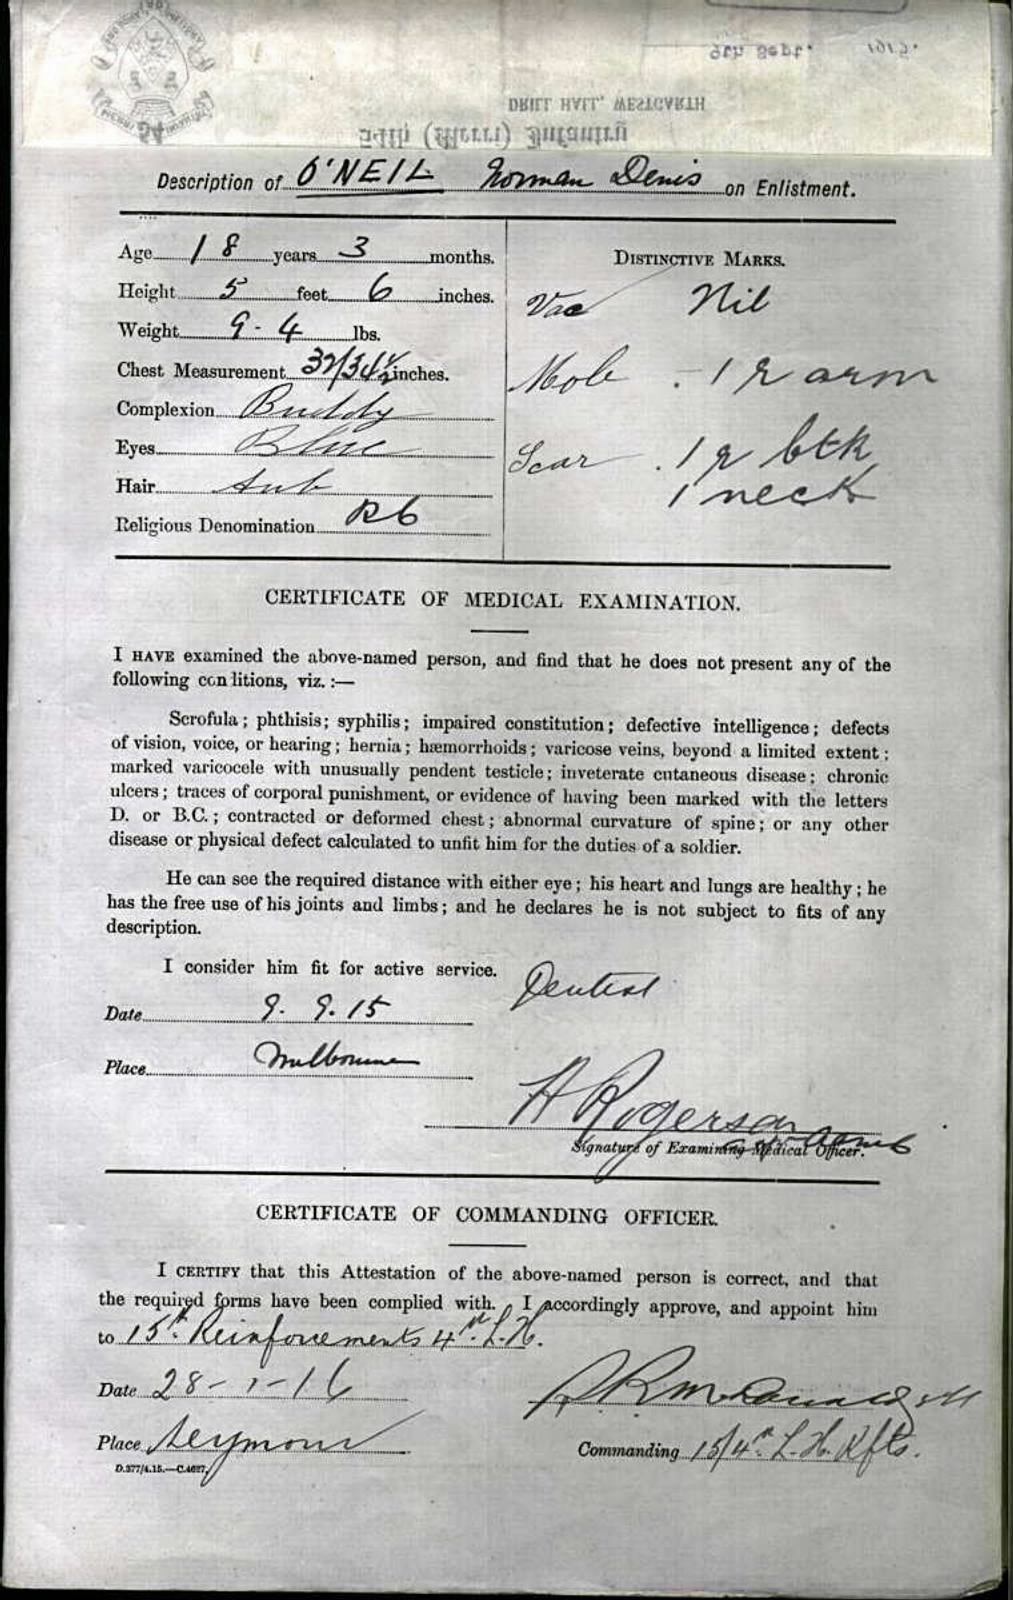 DRILL HALL, WESTGARTH
54th (Merri) Infantry
Description of O'NEIL Norman Denis on Enlistment.
Age 18 years 3 months.
Height 5 feet 6 inches.
Weight 9-4 lbs.
Chest Measurement 32/34½ inches.
Complexion Ruddy
Eyes Blue
Hair Aub
Religious Denomination RC
DISTINCTIVE MARKS.
Vac Nil
Mole 1 R arm
Scar 1 R btk
1 neck
CERTIFICATE OF MEDICAL EXAMINATION.
I HAVE examined the above-named person, and find that he does not present any of the
following conditions, viz. :—
Scrofula ; phthisis; syphilis; impaired constitution ; defective intelligence ; defects
of vision, voice, or hearing ; hernia ; hæmorrhoids ; varicose veins, beyond a limited extent ;
marked varicocele with unusually pendent testicle ; inveterate cutaneous disease ; chronic
ulcers ; traces of corporal punishment, or evidence of having been marked with the letters
D. or B.C. ; contracted or deformed chest ; abnormal curvature of spine ; or any other
disease or physical defect calculated to unfit him for the duties of a soldier.
He can see the required distance with either eye ; his heart and lungs are healthy ; he
has the free use of his joints and limbs ; and he declares he is not subject to fits of any
description.
I consider him fit for active service.
Dentist
Date 9. 9. 15
Place Melbourne
H Rogerson
Signature of Examining Medical Officer.
CERTIFICATE OF COMMANDING OFFICER.
I CERTIFY that this Attestation of the above-named person is correct, and that
the required forms have been complied with. I accordingly approve, and appoint him
to 15th Reinforcements 4th L.H.
Date 28-1-16
Place Seymour
Commanding 15/4th L.H. Rfts.
D.377/4.15.—C.4627.